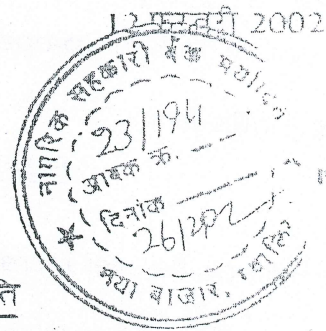 12 फरवरी 2002
नागरिक सहकारी बैंक मर्यादित
23/1941
आवक क्र.
दिनांक
26/2/02
नया बाजार, ग्वालियर
ति